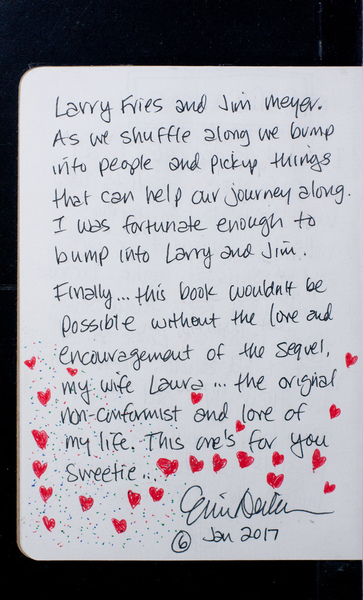 Larry Fries and Jim Meyer.
As we shuffle along we bump
into people and pickup things
that can help our journey along.
I was fortunate enough to
bump into Larry and Jim.
Finally... this book wouldn't be
possible without the love and
encouragement of the sequel,
my wife Laura... the original
non-conformist and love of
my life. This one's for you
sweetie...
6 Jan 2017